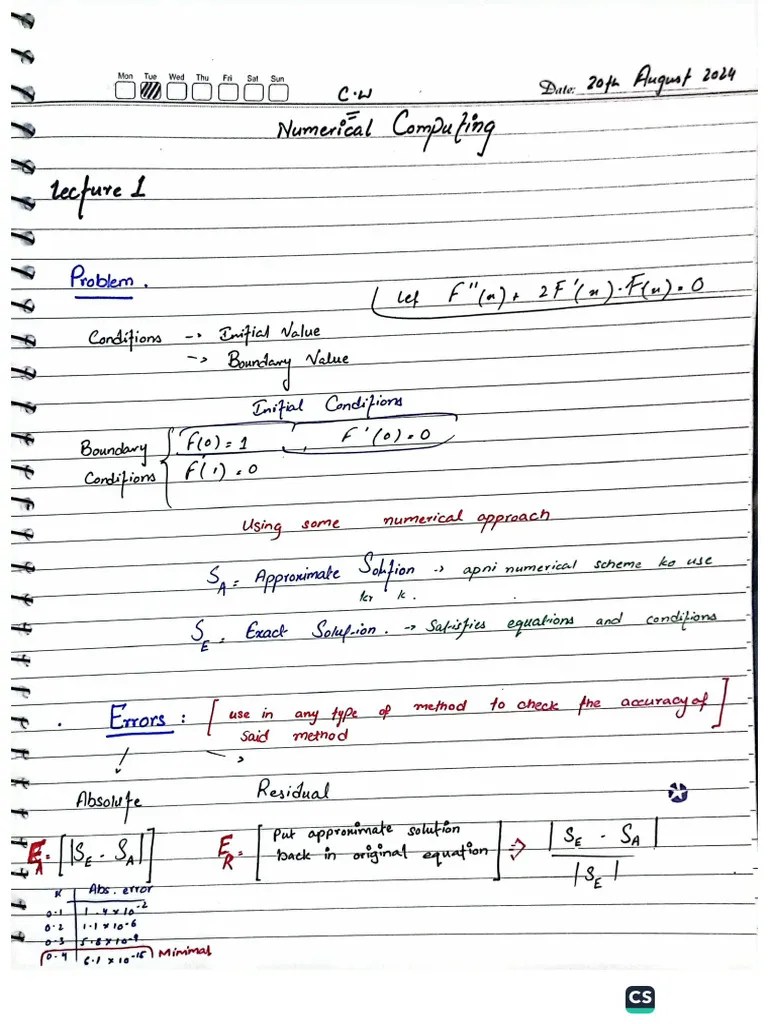 Mon Tue Wed Thu Fri Sat Sun
C.W
Date: 20th August 2024
Numerical Computing
Lecture 1
Problem.
Let F''(x) + 2F'(x) . F(x) = 0
Conditions -> Initial Value
-> Boundary Value
Initial Conditions
Boundary Conditions { F(0) = 1 F'(0) = 0
F(1) = 0
Using some numerical approach
S_A = Approximate Solution -> apni numerical scheme ko use
kr k.
S_E = Exact Solution. -> Satisfies equations and conditions
Errors : [use in any type of method to check the accuracy of
said method]
Absolute Residual
E_A = [|S_E - S_A|] E_R = [Put approximate solution
back in original equation] => |S_E - S_A| / |S_E|
x Abs. error
0.1 1.4 x 10^-2
0.2 1.1 x 10^-6
0.3 5.8 x 10^-9
0.4 6.1 x 10^-15 Minimal
CS